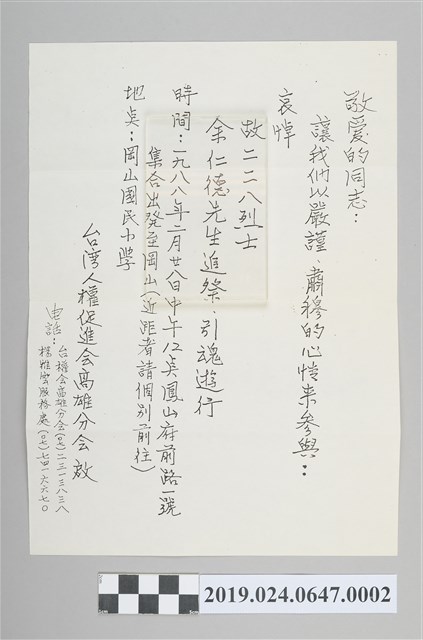 敬愛的同志：
讓我們以嚴謹、肅穆的心情來參與：
哀悼
故二二八烈士
余仁德先生追祭、引魂遊行
時間：一九八八年二月廿八日中午12点鳳山府前路一號
集合出発至岡山（近距者請個別前往）
地点：岡山國民小學
台湾人權促進会高雄分会 啟
電話：
台權会高雄分会（07）二三一三八三八
楊雅雲服務處（07）七四一六六七〇
2019.024.0647.0002